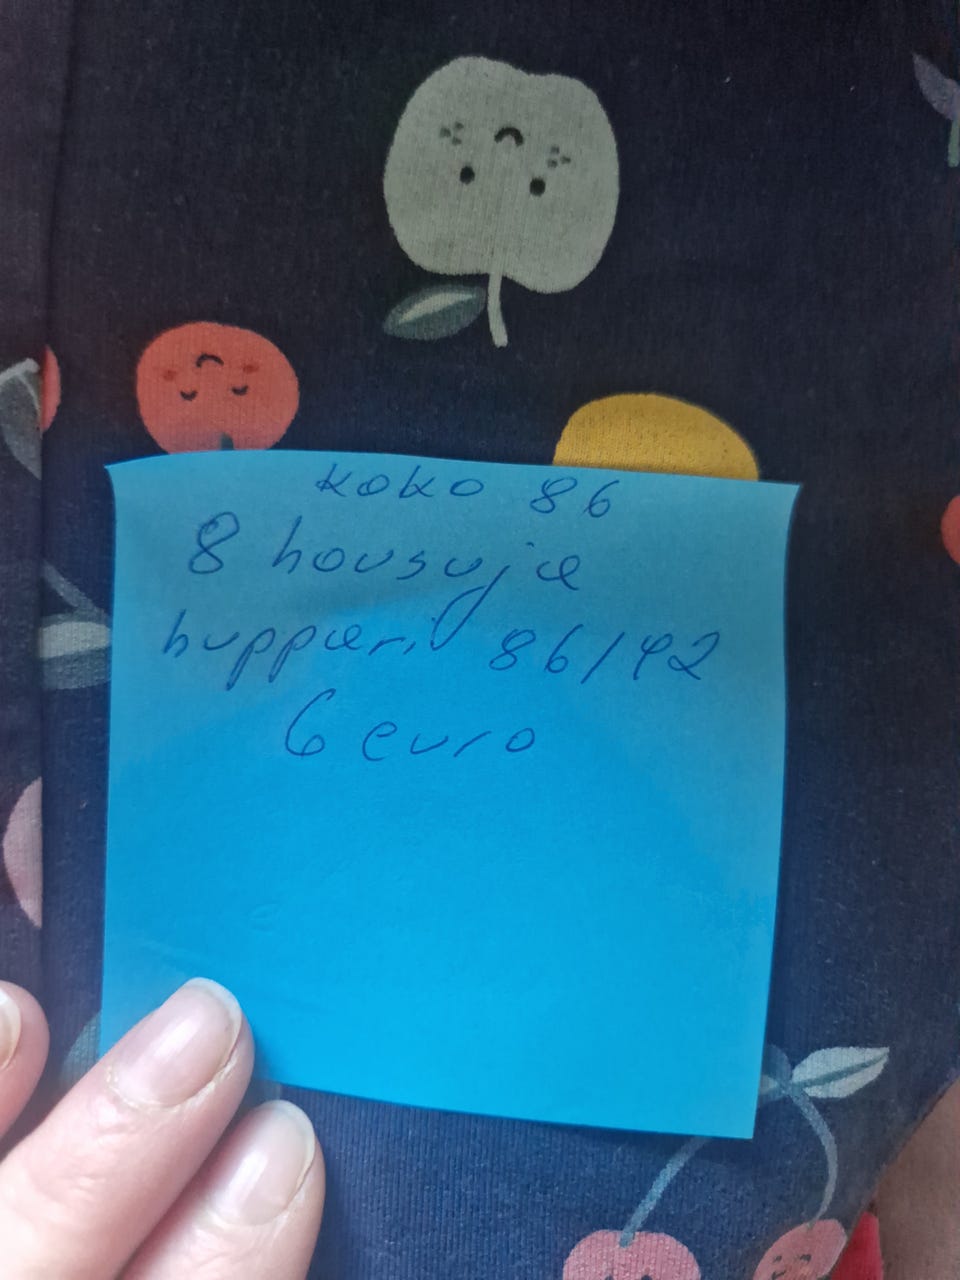 koko 86
8 housuja
huppari 86/92
6 euro